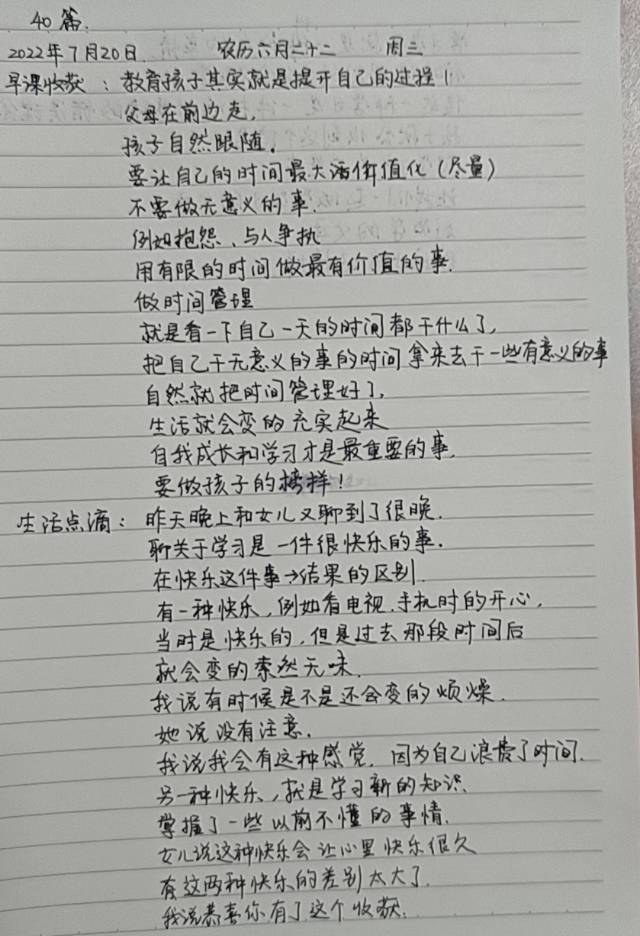 40篇.
2022年7月20日. 农历六月二十二 周三
早课收获：教育孩子其实就是提升自己的过程！
父母在前边走,
孩子自然跟随.
要让自己的时间最大活价值化（尽量）
不要做无意义的事.
例如抱怨、与人争执
用有限的时间做最有价值的事.
做时间管理
就是看一下自己一天的时间都干什么了,
把自己干无意义的事的时间拿来去干一些有意义的事
自然就把时间管理好了,
生活就会变的充实起来
自我成长和学习才是最重要的事.
要做孩子的榜样！
生活点滴：昨天晚上和女儿又聊到了很晚.
聊关于学习是一件很快乐的事.
在快乐这件事→结果的区别.
有一种快乐,例如看电视.手机时的开心,
当时是快乐的,但是过去那段时间后
就会变的索然无味.
我说有时候是不是还会变的烦燥.
她说没有注意.
我说我会有这种感觉.因为自己浪费了时间.
另一种快乐,就是学习新的知识.
掌握了一些以前不懂的事情.
女儿说这种快乐会让心里快乐很久
有这两种快乐的差别太大了.
我说恭喜你有了这个收获.